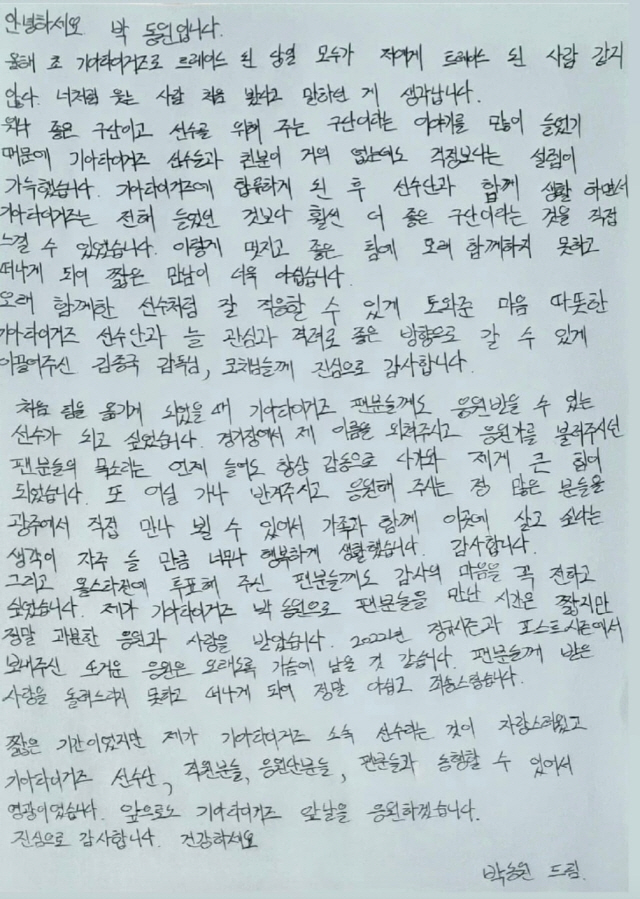 안녕하세요 박 동원입니다.
올해 초 기아타이거즈로 트레이드 된 당일 모두가 저에게 트레이드 된 사람 같지
않다. 너처럼 웃는 사람 처음 봤다고 말하던 게 생각납니다.
워낙 좋은 구단이고 선수를 위해 주는 구단이라는 이야기를 많이 들었기
때문에 기아타이거즈 선수들과 친분이 거의 없는데도 걱정보다는 설렘이
가득했습니다. 기아타이거즈에 합류하게 된 후 선수단과 함께 생활 하면서
기아타이거즈는 전해 들었던 것보다 훨씬 더 좋은 구단이라는 것을 직접
느낄 수 있었습니다. 이렇게 멋지고 좋은 팀에 오래 함께하지 못하고
떠나게 되어 짧은 만남이 더욱 아쉽습니다.
오래 함께한 선수처럼 잘 적응할 수 있게 도와준 마음 따뜻한
기아타이거즈 선수단과 늘 관심과 격려로 좋은 방향으로 갈 수 있게
이끌어주신 김종국 감독님, 코치님들께 진심으로 감사합니다.
처음 팀을 옮기게 되었을 때 기아타이거즈 팬분들께도 응원받을 수 있는
선수가 되고 싶었습니다. 경기장에서 제 이름을 외쳐주시고 응원가를 불러주시던
팬분들의 목소리는 언제 들어도 항상 감동으로 다가와 제게 큰 힘이
되었습니다. 또 어딜 가나 반겨주시고 응원해 주시는 정 많은 분들을
광주에서 직접 만나 뵐 수 있어서 가족과 함께 이곳에 살고 싶다는
생각이 자주 들 만큼 너무나 행복하게 생활했습니다. 감사합니다.
그리고 올스타전에 투표해 주신 팬분들께도 감사의 마음을 꼭 전하고
싶었습니다. 제가 기아타이거즈 박동원으로 팬분들을 만난 시간은 짧지만
정말 과분한 응원과 사랑을 받았습니다. 2022년 정규시즌과 포스트시즌에서
보내주신 뜨거운 응원은 오래도록 가슴에 남을 것 같습니다. 팬분들께 받은
사랑을 돌려드리지 못하고 떠나게 되어 정말 아쉽고 죄송스럽습니다.
짧은 기간이었지만 제가 기아타이거즈 소속 선수라는 것이 자랑스러웠고
기아타이거즈 선수단, 직원분들, 응원단분들, 팬분들과 동행할 수 있어서
영광이었습니다. 앞으로도 기아타이거즈 앞날을 응원하겠습니다.
진심으로 감사합니다. 건강하세요
박동원 드림.